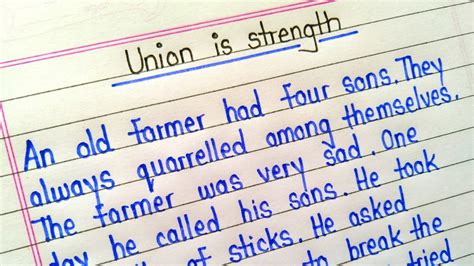 Union is strength
An old farmer had four sons. They
always quarrelled among themselves.
The farmer was very sad. One
day he called his sons. He took
of sticks. He asked
to break the
tried